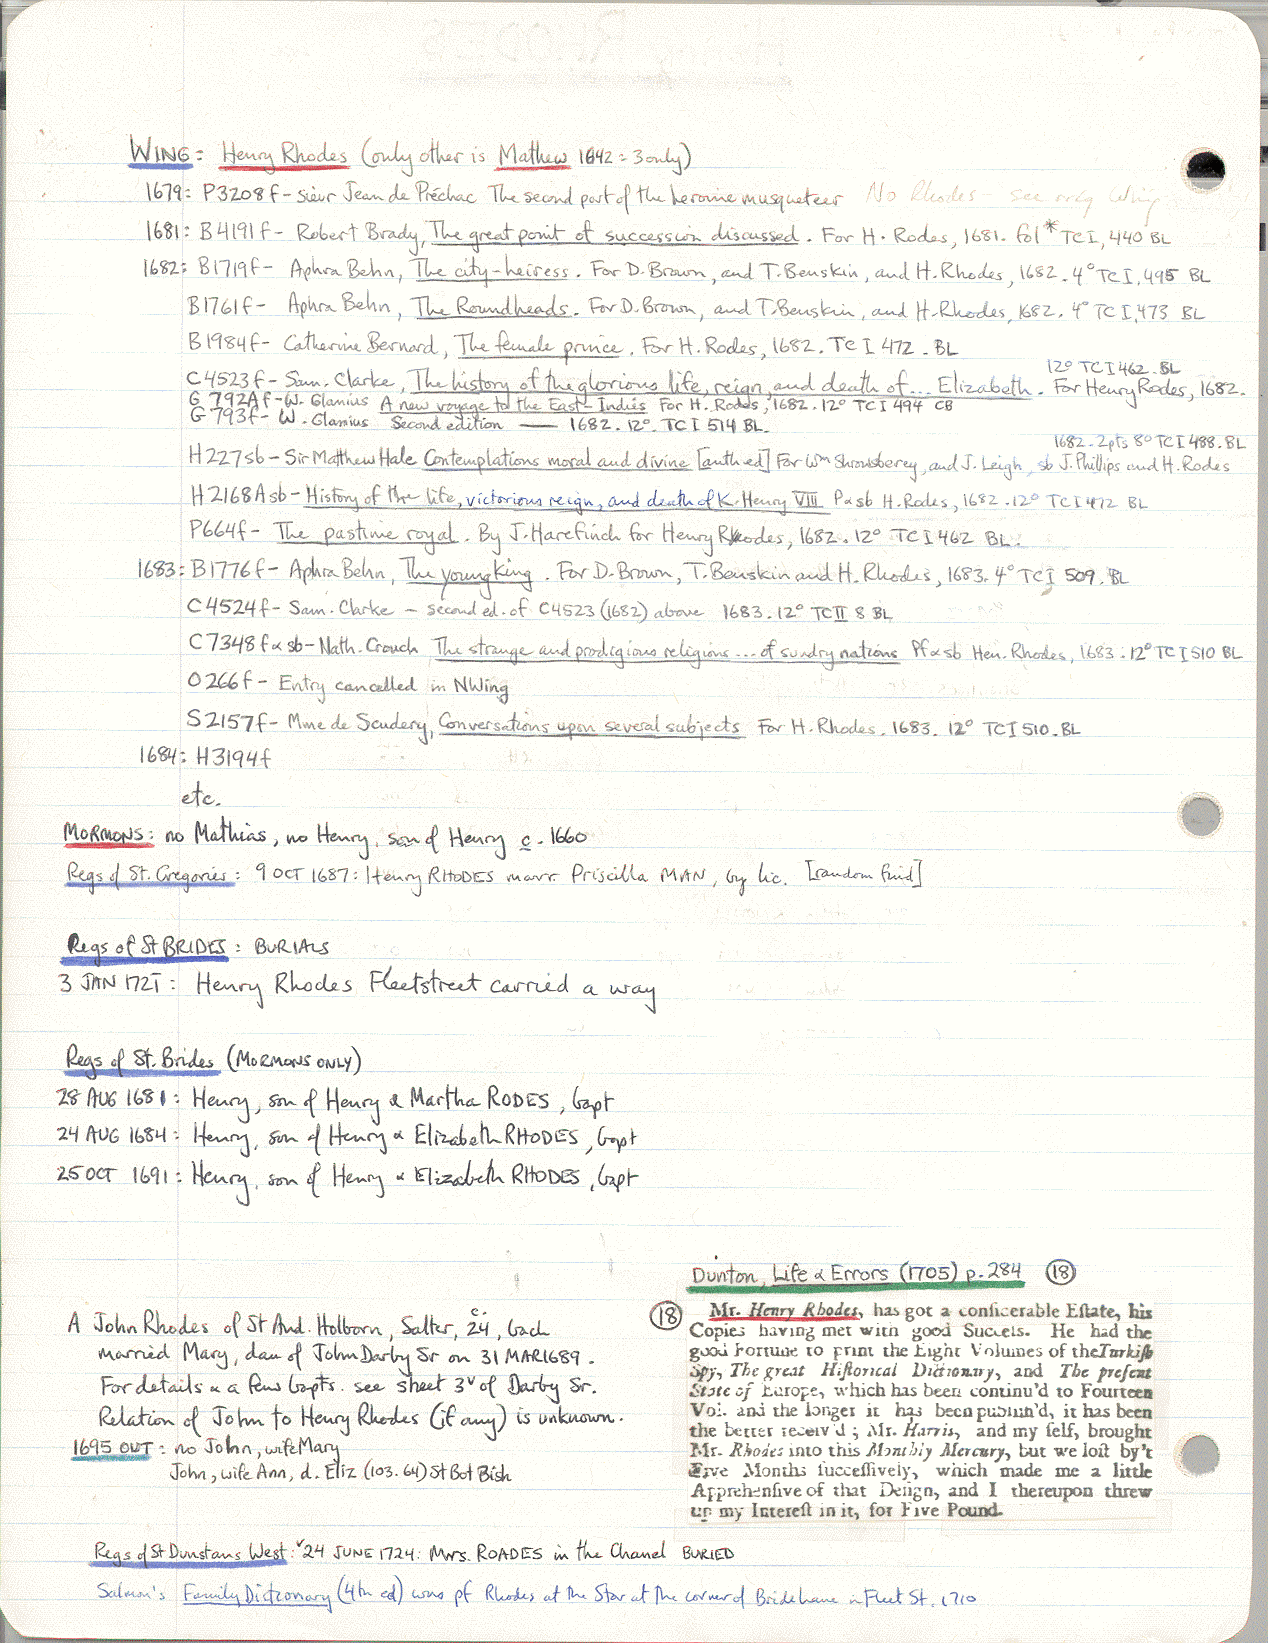 WING: Henry Rhodes (only other is Mathew 1642 = 3 only)
1679: P3208f - Sieur Jean de Préchac The second part of the heroine musqueteer No Rhodes - see only Wing
1681: B4191f - Robert Brady, The great point of succession discussed. For H. Rodes, 1681. fol* TC I, 440 BL
1682: B1719f - Aphra Behn, The city-heiress. For D. Brown, and T. Benskin, and H. Rhodes, 1682. 4° TC I, 495 BL
B1761f - Aphra Behn, The Roundheads. For D. Brown, and T. Benskin, and H. Rhodes, 1682. 4° TC I, 473 BL
B1984f - Catherine Bernard, The female prince. For H. Rodes, 1682. TC I 472. BL
12° TC I 462. BL
C4523f - Sam. Clarke, The history of the glorious life, reign, and death of... Elizabeth. For Henry Rodes, 1682.
G 792Af - W. Glanius A new voyage to the East-Indies For H. Rodes, 1682. 12° TC I 494 CB
G 793f - W. Glanius Second edition —— 1682. 12°. TC I 514 BL.
1682. 2pts 8° TC I 488. BL
H227sb - Sir Matthew Hale Contemplations moral and divine [anth ed] For Wm Shrowsberey, and J. Leigh, sb J. Phillips and H. Rodes
H2168Asb - History of the life, victorious reign, and death of K. Henry VIII P & sb H. Rodes, 1682. 12° TC I 472 BL
P664f - The pastime royal. By J. Harefinch for Henry Rhodes, 1682. 12° TC I 462 BL.
1683: B1776f - Aphra Behn, The young King. For D. Brown, T. Benskin and H. Rhodes, 1683. 4° TC I 509. BL
C4524f - Sam. Clarke - second ed. of C4523 (1682) above 1683. 12° TC II 8 BL
C7348f & sb - Nath. Crouch The strange and prodigious religions ... of sundry nations Pf & sb Hen. Rhodes, 1683. 12° TC I 510 BL
O266f - Entry cancelled in NWing
S2157f - Mme de Scudery, Conversations upon several subjects For H. Rhodes, 1683. 12° TC I 510. BL
1684: H3194f
etc.
MORMONS: no Mathias, no Henry, son of Henry c. 1660
Regs of St. Gregories: 9 OCT 1687: Henry RHODES marr. Priscilla MAN, by lic. [random find]
Regs of St BRIDES: BURIALS
3 JAN 172: Henry Rhodes Fleetstreet carried a way
Regs of St. Brides (MORMONS ONLY)
28 AUG 1681: Henry, son of Henry & Martha RODES, bapt
24 AUG 1684: Henry, son of Henry & Elizabeth RHODES, bapt
25 OCT 1691: Henry, son of Henry & Elizabeth RHODES, bapt
A John Rhodes of St And. Holborn, Salter, c. 24, bach
married Mary, dau of John Darby Sr on 31 MAR 1689.
For details & a few bapts. see sheet 3v of Darby Sr.
Relation of John to Henry Rhodes (if any) is unknown.
1695 OUT: no John, wife Mary
John, wife Ann, d. Eliz (103.64) St Bot Bish
Dunton, Life & Errors (1705) p. 284 (18)
(18) Mr. Henry Rhodes, has got a conſiderable Eſtate, his
Copies having met with good Succeſs. He had the
good Fortune to print the Eight Volumes of the Turkiſh
Spy, The great Hiſtorical Dictionary, and The preſent
State of Europe, which has been continu'd to Fourteen
Vol. and the longer it has been publiſh'd, it has been
the better receiv'd; Mr. Harris, and my ſelf, brought
Mr. Rhodes into this Monthly Mercury, but we loſt by't
Five Months ſucceſſively, which made me a little
Apprehenſive of that Deſign, and I thereupon threw
up my Intereſt in it, for Five Pound.
Regs of St Dunstans West: 24 JUNE 1724: Mrs. ROADES in the Chanel BURIED
Salmon's Family Dictionary (4th ed) was pf Rhodes at the Star at the corner of Bride lane in Fleet St. 1710